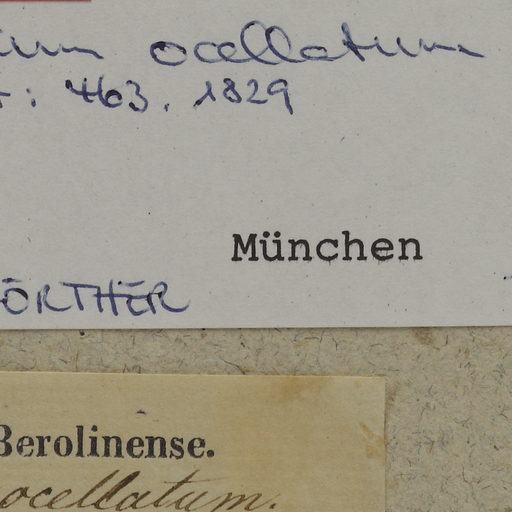 um ocellatum
: 463. 1829
München
ÖRTHER
Berolinense.
ocellatum.